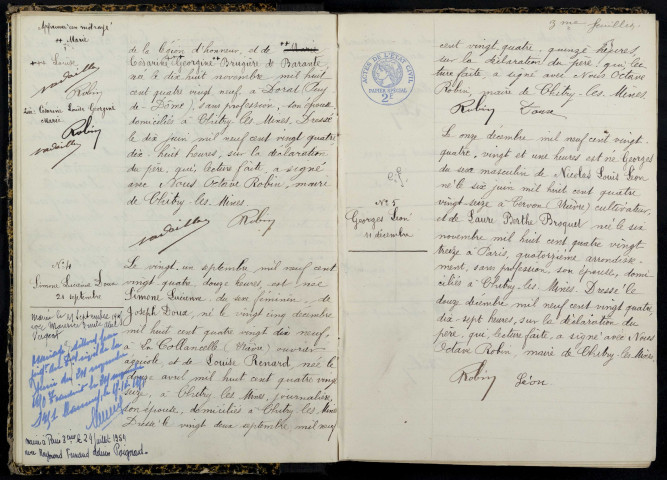 Approuvé un mot rayé
"Marie"
Louise
Vadaille
Robin
Lire: Césarine Louise Georgine
Marie.
Robin
Vadaille
de la Légion d'honneur, et de Marie
Césarine Georgine Brugière de Barante
née le dix huit novembre mil huit
cent quatre vingt neuf à Dorat (Puy
de-Dôme), sans profession, son épouse
domiciliés à Chitry-les-Mines. Dressé
le dix juin mil neuf cent vingt quatre
dix-huit heures, sur la déclaration
du père, qui, lecture faite, a signé
avec Nous Octave Robin, maire
de Chitry-les-Mines.
Robin
N° 4
Simone Lucienne Doux
21 septembre
Marié le 15 septembre
avec Maurice
Mariage
mariée à Paris 2ème le 29 juillet 1954
avec Raymond Fernand
Le vingt-un septembre mil neuf cent
vingt quatre douze heures, est née
Simone Lucienne du sexe féminin, de
Joseph Doux, né le vingt cinq décembre
mil huit cent quatre vingt dix neuf,
à La Collancelle (Nièvre) ouvrier
agricole et de Louise Renard née le
douze avril mil huit cent quatre vingt
seize, à Chitry les Mines, journalière,
son épouse, domiciliés à Chitry-les-Mines
Dressé le vingt deux septembre mil neuf
3me feuillet.
ACTES DE L'ÉTAT CIVIL
PAPIER SPÉCIAL
2F
cent vingt quatre quinze heures,
sur la déclaration du père qui, lec
ture faite, a signé avec Nous Octave
Robin, maire de Chitry-les-Mines.
Robin Doux
N° 5
Georges Léon
11 décembre
Le onze décembre mil neuf cent vingt-
quatre, vingt et une heures est né Georges
du sexe masculin de Nicolas Louis Léon
né le six juin mil huit cent quatre
vingt-seize à Cervon (Nièvre) cultivateur,
et de Laure Berthe Broquet née le six
novembre mil huit cent quatre vingt
treize à Paris, quatorzième arrondisse-
ment, sans profession son épouse, domi
ciliés à Chitry-les-Mines. Dressé le
douze décembre mil neuf cent vingt quatre
dix-sept heures, sur la déclaration du
père, qui, lecture faite, a signé avec Nous
Octave Robin, maire de Chitry-les-Mines.
Robin Léon